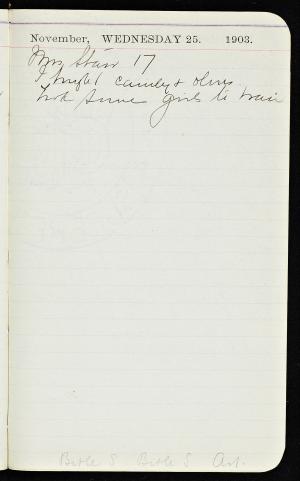 November, WEDNESDAY 25. 1903.
Mrs Starr 17
I bought candy & olives
Took some girls to train
Bible S Bible S Art.